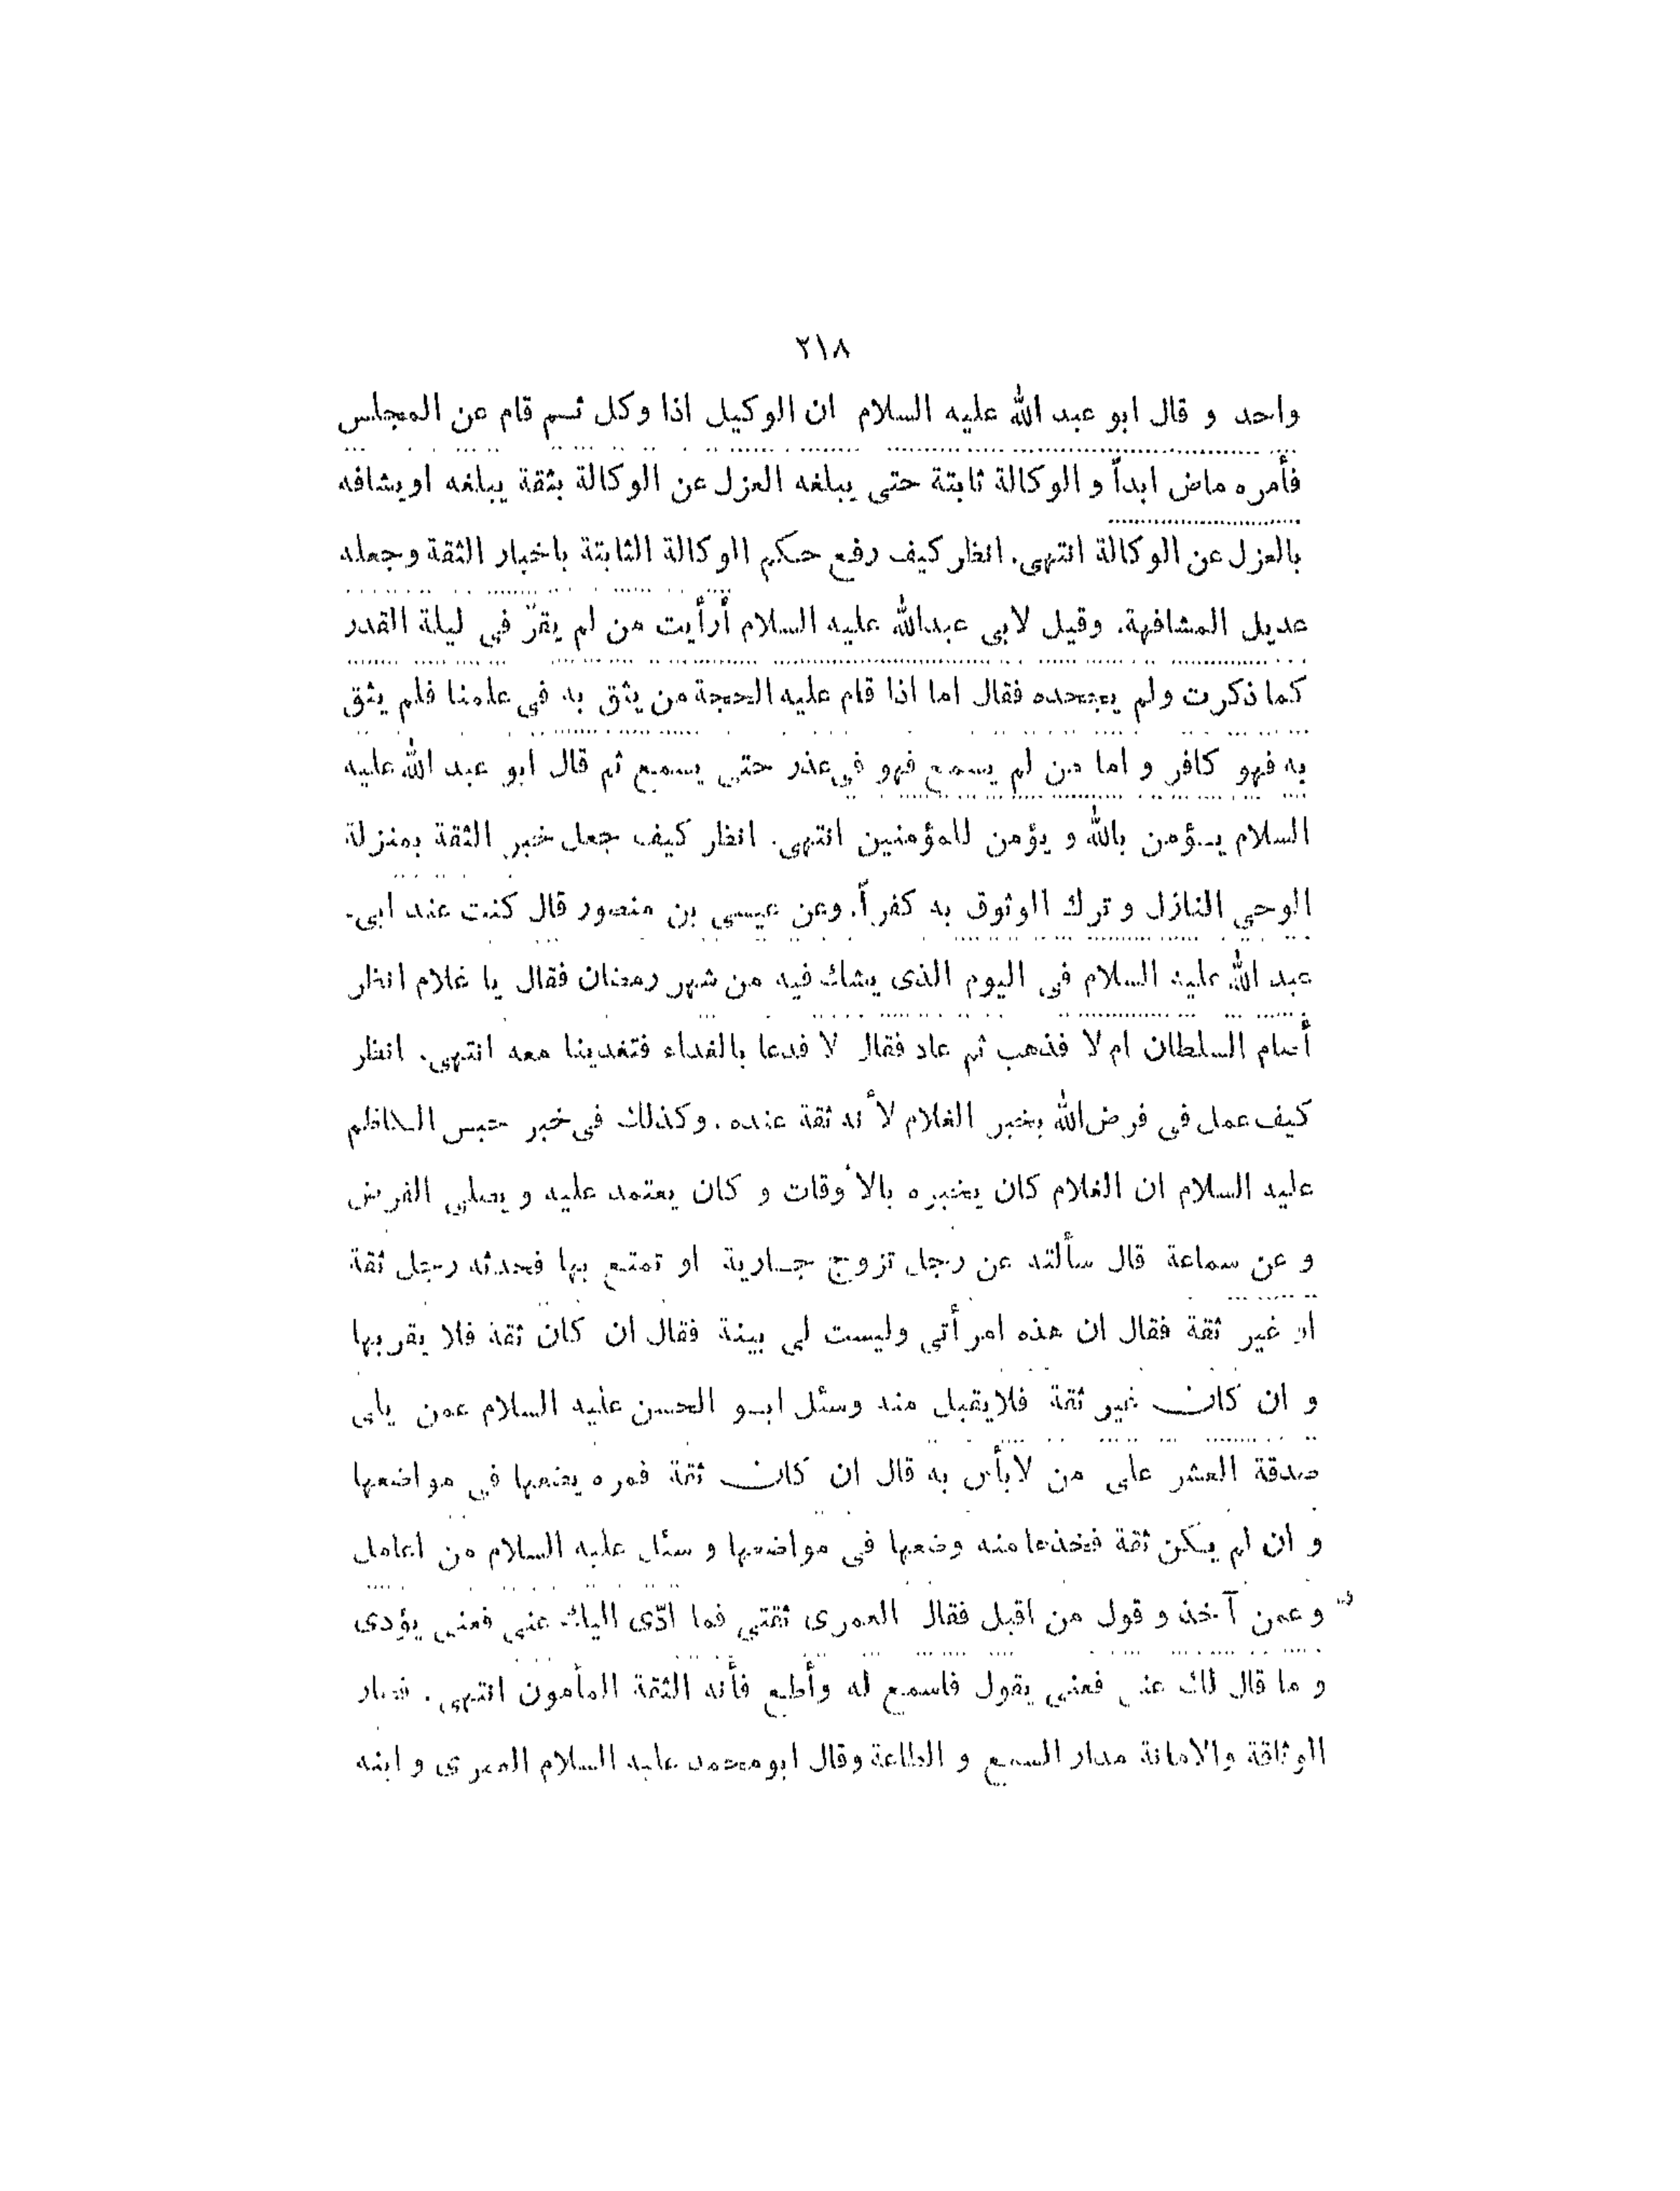 ٢١٨
واحد و قال ابو عبد الله عليه السلام ان الوكيل اذا وكل ثم قام عن المجلس
فأمره ماض ابداً و الوكالة ثابتة حتى يبلغه العزل عن الوكالة بثقة يبلغه او يشافه
بالعزل عن الوكالة انتهى. انظر كيف رفع حكم الوكالة الثابتة باخبار الثقة وجعله
عديل المشافهة. وقيل لابي عبدالله عليه السلام أرأيت من لم يقرّ في ليلة القدر
كما ذكرت ولم يجحده فقال اما اذا قام عليه الحجة من يثق به في علمنا فلم يثق
به فهو كافر و اما من لم يسمع فهو في عذر حتى يسمع ثم قال ابو عبد الله عليه
السلام يـؤمن بالله و يؤمن للمؤمنين انتهى. انظر كيف جعل خبر الثقة بمنزلة
الوحي النازل و ترك الوثوق به كفراً. وعن عيسى بن منصور قال كنت عند ابي-
عبد الله عليه السلام في اليوم الذى يشك فيه من شهر رمضان فقال يا غلام انظر
أصام السلطان ام لا فذهب ثم عاد فقال لا فدعا بالغداء فتغدينا معه انتهى. انظر
كيف عمل في فرض الله بخبر الغلام لأنه ثقة عنده. وكذلك في خبر حبس الكاظم
عليه السلام ان الغلام كان يخبره بالأوقات و كان يعتمد عليه و يصلي الفرض
و عن سماعة قال سألته عن رجل تزوج جـارية او تمتع بها فحدثه رجل ثقة
او غير ثقة فقال ان هذه امرأتي وليست لي بينة فقال ان كان ثقة فلا يقربها
و ان كان غير ثقة فلايقبل منه وسئل ابـو الحسن عليه السلام عمن يلى
صدقة العشر على من لابأس به قال ان كان ثقة فمره يضعها في مواضعها
و ان لم يكن ثقة فخذها منه وضعها في مواضعها و سئل عليه السلام من اعامل
و عمن آخذ و قول من اقبل فقال العمرى ثقتي فما ادّى اليك عني فعني يؤدى
و ما قال لك عني فعني يقول فاسمع له وأطع فأنه الثقة المأمون انتهى. فصار
الوثاقة والامانة مدار السمع و الطاعة وقال ابومحمد عليه السلام العمرى و ابنه